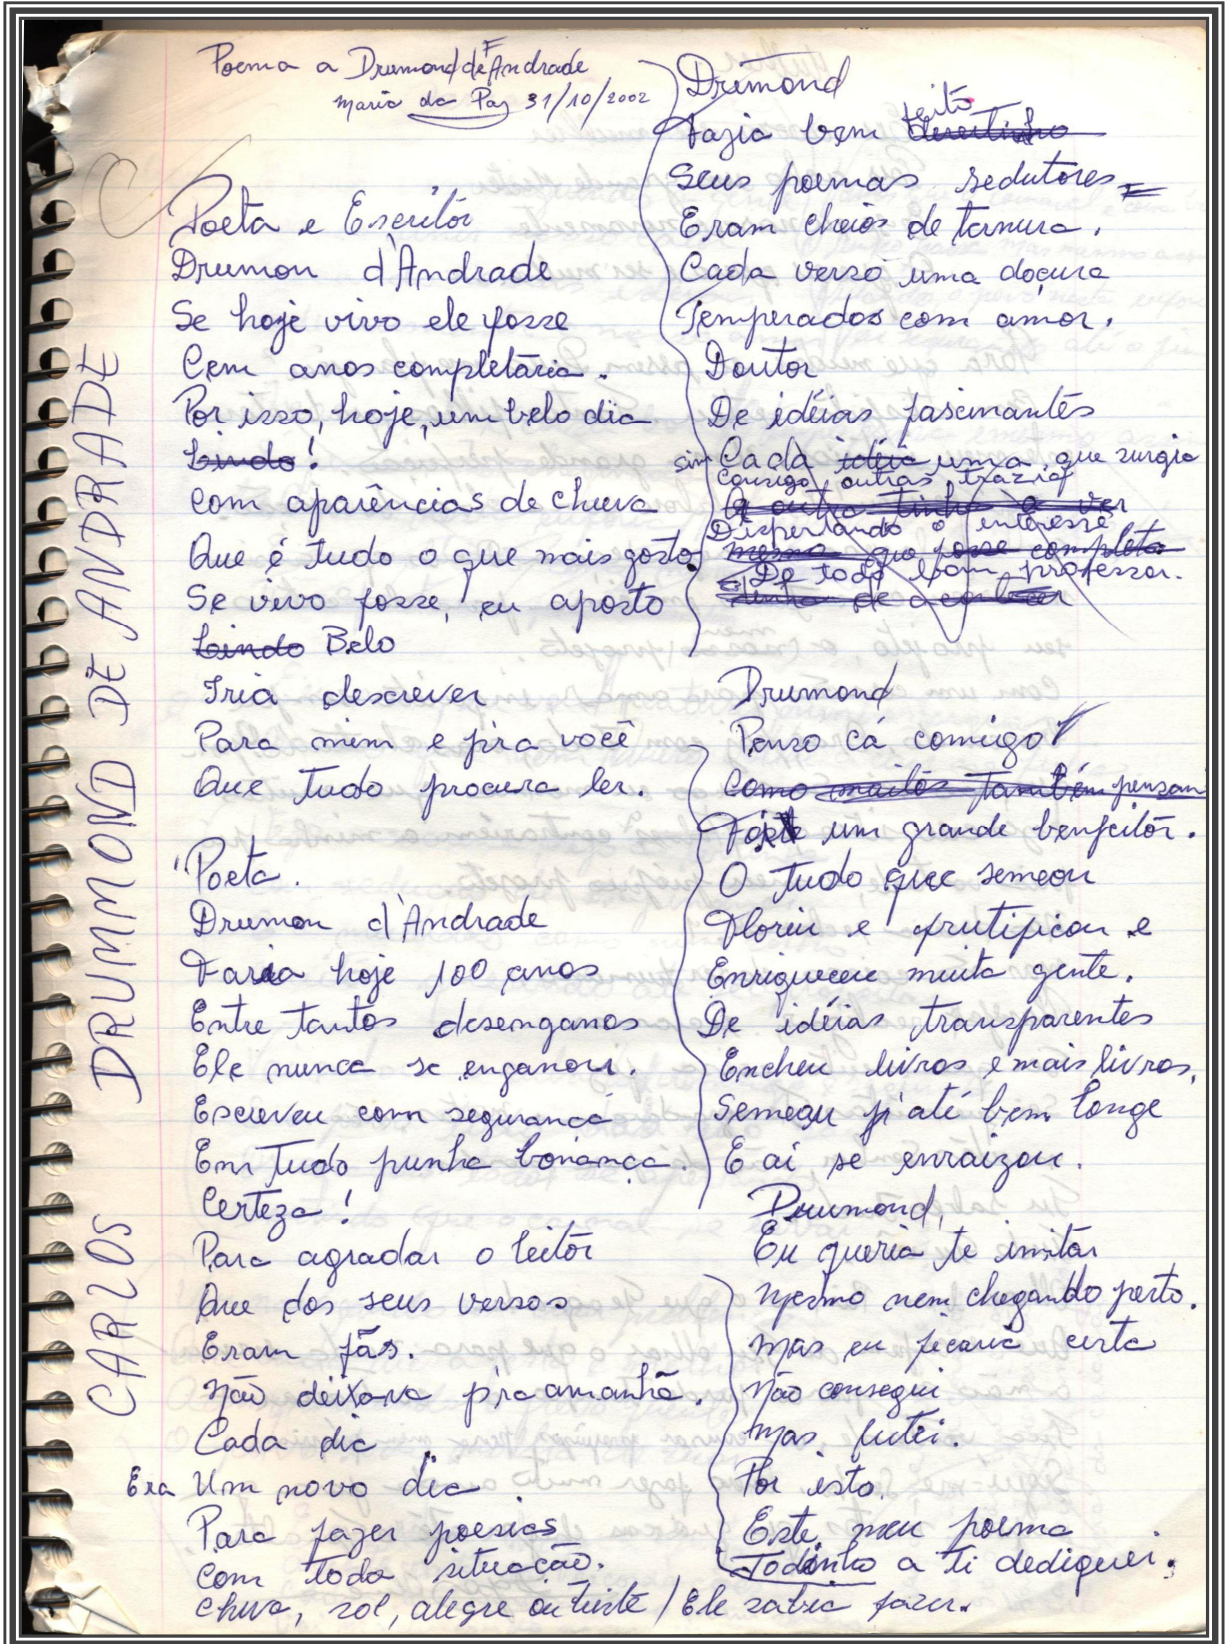 Poema a Drumond de Andrade
Maria da Paz 31/10/2002
CARLOS DRUMMOND DE ANDRADE
Poeta e Escritor
Drumon d'Andrade
Se hoje vivo ele fosse
Cem anos completaria.
Por isso, hoje, um belo dia
Lindo!
Com aparências de chuva
Que é tudo o que mais gosto.
Se vivo fosse, eu aposto
Lindo Belo
Iria descrever
Para mim e p'ra você
Que tudo procura ler.
Poeta.
Drumon d'Andrade
Faria hoje 100 anos
Entre tantos desenganos
Ele nunca se enganou.
Escreveu com segurança
Em tudo punha bonança.
Certeza!
Para agradar o leitor
Que dos seus versos
Eram fãs.
Não deixava p'ra amanhã.
Cada dia
Era Um novo dia
Para fazer poesias
Com toda situação.
Chuva, sol, alegre ou triste / Ele sabia fazer.
Drumond
Fazia bem feito
Seus poemas sedutores
Eram cheios de ternura.
Cada verso uma doçura
Temperados com amor.
Doutor
De idéias fascinantes
sim Cada idéia uma que surgia
Consigo outras trazia
A outra tinha a ver
Dispertando o interesse
mesmo que fosse completo
De todo bom professor.
tinha de acontecer
Drumond
Penso cá comigo
Como muitos também pensam
Foste um grande benfeitor.
O tudo que semeou
Floriu e frutificou e
Enriqueceu muita gente.
De idéias transparentes
Encheu livros e mais livros,
Semeou p'até bem longe
E aí se enraizou.
Drumond,
Eu queria te imitar
Mesmo nem chegando perto.
Mas eu ficaria certa
Não consegui
Mas lutei.
Por isto.
Este meu poema
Todinho a ti dediquei.